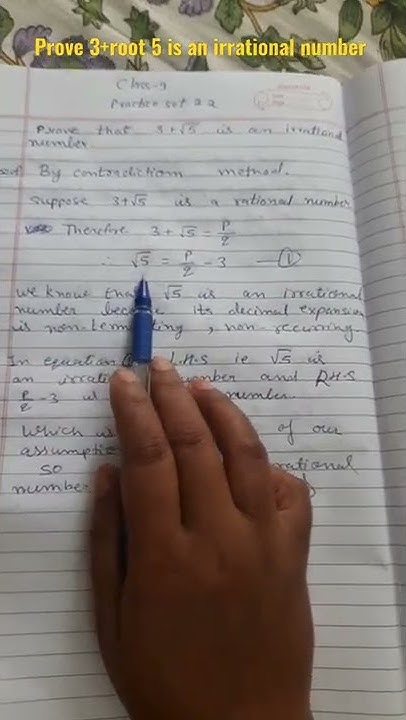 Prove 3+root 5 is an irrational number
Class-9
Practice set 2.2
Prove that 3+√5 is an irrational
number
By contradiction method.
Suppose 3+√5 is a rational number
Therefore 3 + √5 = P/q
∴ √5 = P/q - 3 — ①
We know that √5 is an irrational
number because its decimal expansion
is non-terminating, non-recurring.
In equation L.H.S ie √5 is
an number and R.H.S
P/q - 3 number.
Which is of our
assumption
so
number